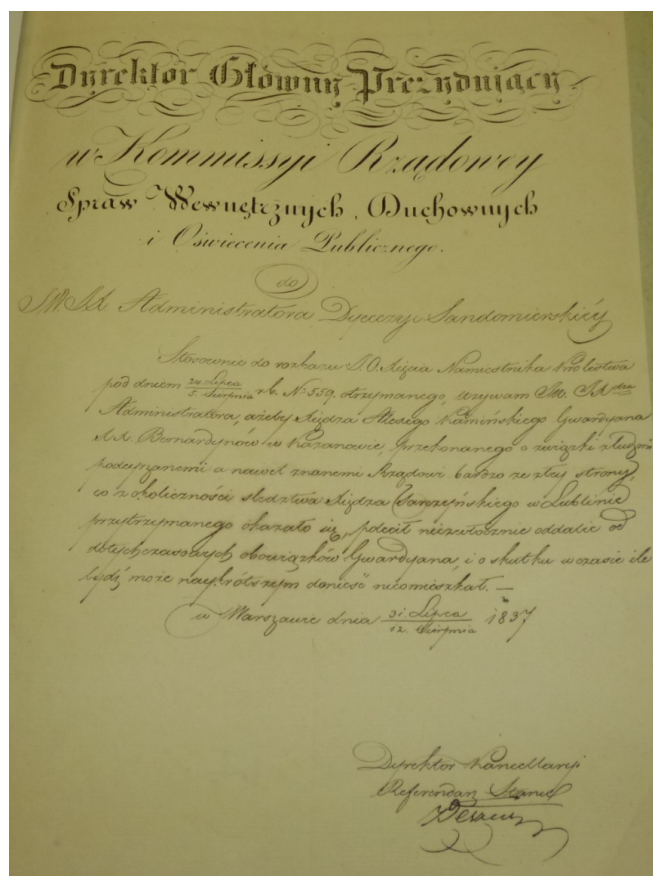 Dyrektor Główny Prezydujący
w Kommissyi Rządowey
Spraw Wewnętrznych, Duchownych
i Oświecenia Publicznego.
do
JW. JX. Administratora Dyecezyi Sandomierskiéy
Stosownie do rozkazu J.O. Xięcia Namiestnika Królestwa
pod dniem 24 Lipca / 5 Sierpnia r.b. No 559, otrzymanego, wzywam JW. JX.
Administratora, ażeby Xiędza Kamińskiego Gwardyana
XX. Bernardynów w Kazanowie, przekonanego o związki z ludźmi
podejrzanemi a nawet znanemi Rządowi bardzo ze złey strony,
co z okoliczności śledztwa Xiędza w Lublinie
przytrzymanego okazało się, polecił niezwłocznie oddalić od
dotychczasowych obowiązków Gwardyana, i o skutku w czasie ile
bydź może naykrótszym donieść nieomieszkał. —
w Warszawie dnia 31 Lipca / 12 Sierpnia 1837
Dyrektor Kancellaryi
Referendarz Stanu